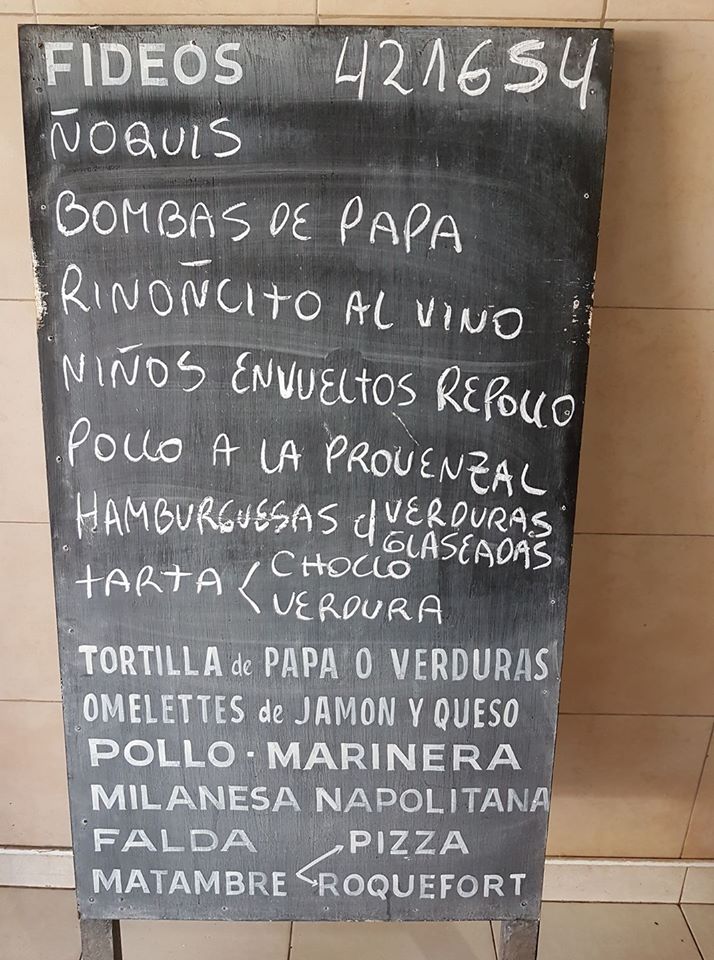 FIDEOS 421654
ÑOQUIS
BOMBAS DE PAPA
RINOÑCITO AL VINO
NIÑOS ENVUELTOS REPOLLO
POLLO A LA PROVENZAL
HAMBURGUESAS d VERDURAS
GLASEADAS
TARTA < CHOCLO
VERDURA
TORTILLA de PAPA O VERDURAS
OMELETTES de JAMON Y QUESO
POLLO · MARINERA
MILANESA NAPOLITANA
FALDA PIZZA
MATAMBRE ROQUEFORT